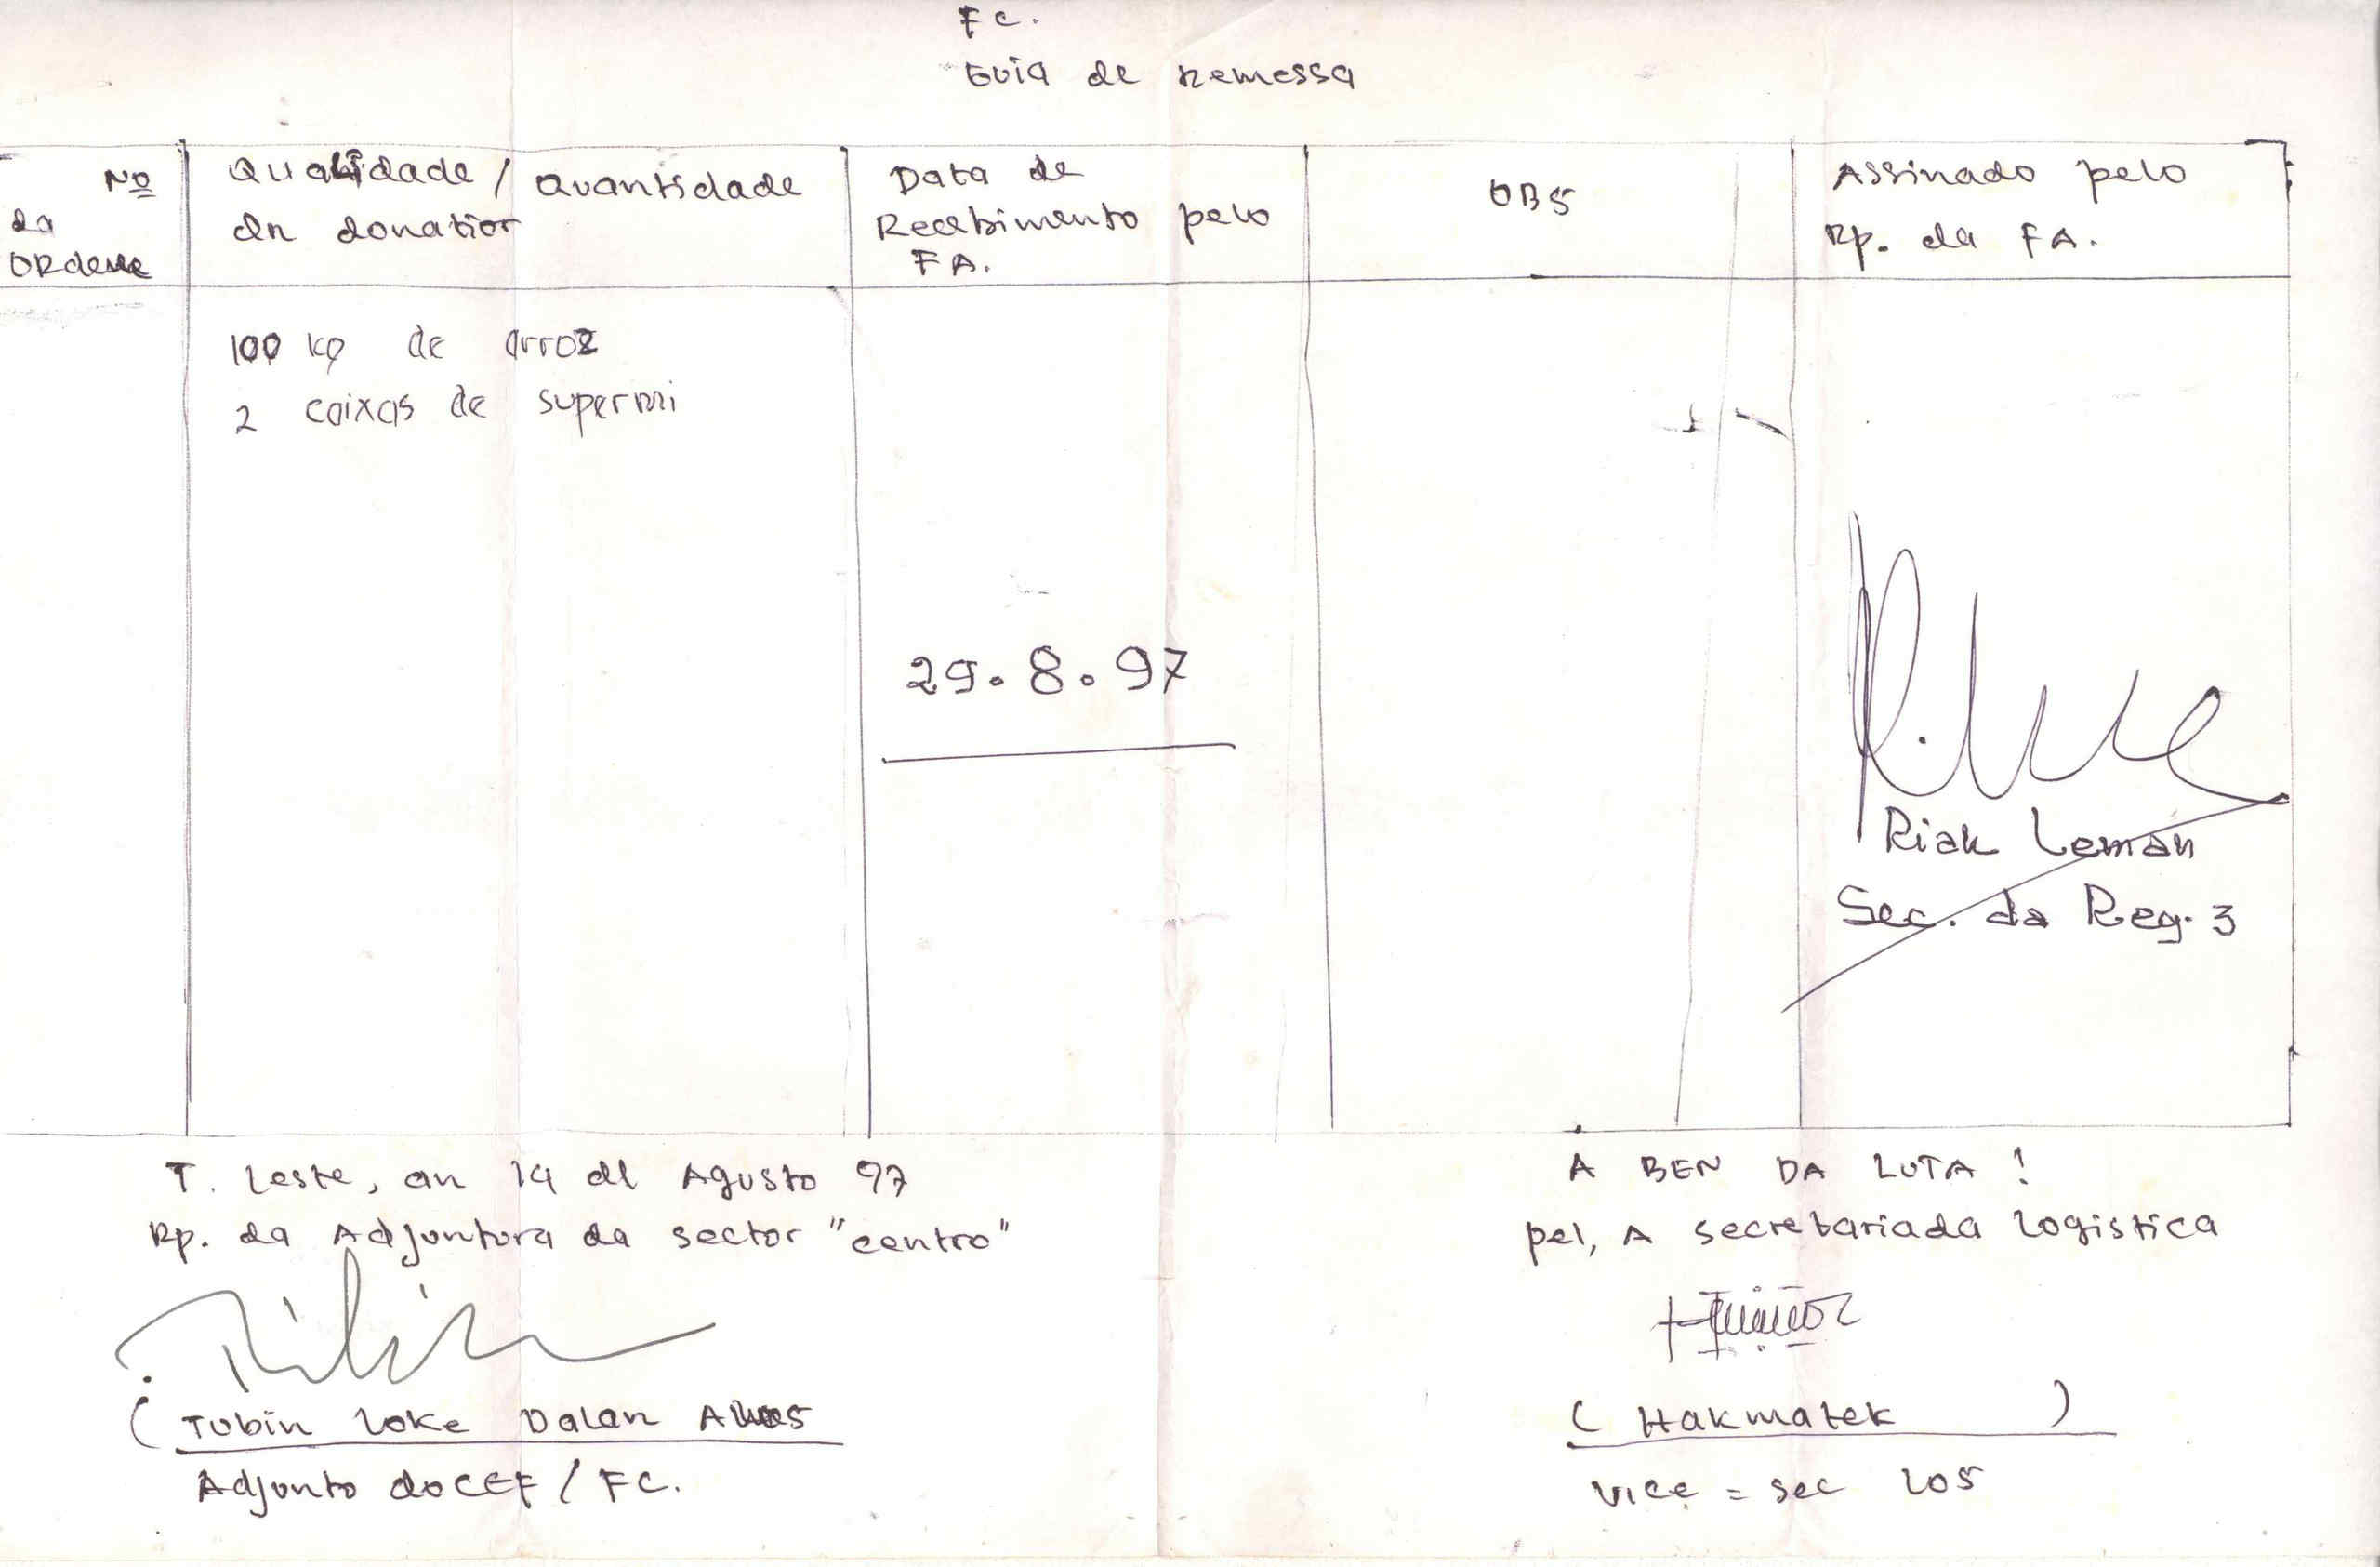 FC.
Guia de Remessa
Nº
da
ORdem
Qualidade / Quantidade
de donatior
Data de
Recebimento pelo
FA.
OBS
Assinado pelo
Rp. da FA.
100 kg de arroz
2 caixas de supermi
29.8.97
Riak Leman
Sec. da Reg. 3
T. Leste, an 14 de Agusto 97
Rp. da Adjuntura da sector "centro"
(Tubin Loke Dalan
Adjunto do CEF / FC.
A BEN DA LUTA !
pel, A secretariada Logistica
( Hakmatek )
vice = sec LOS